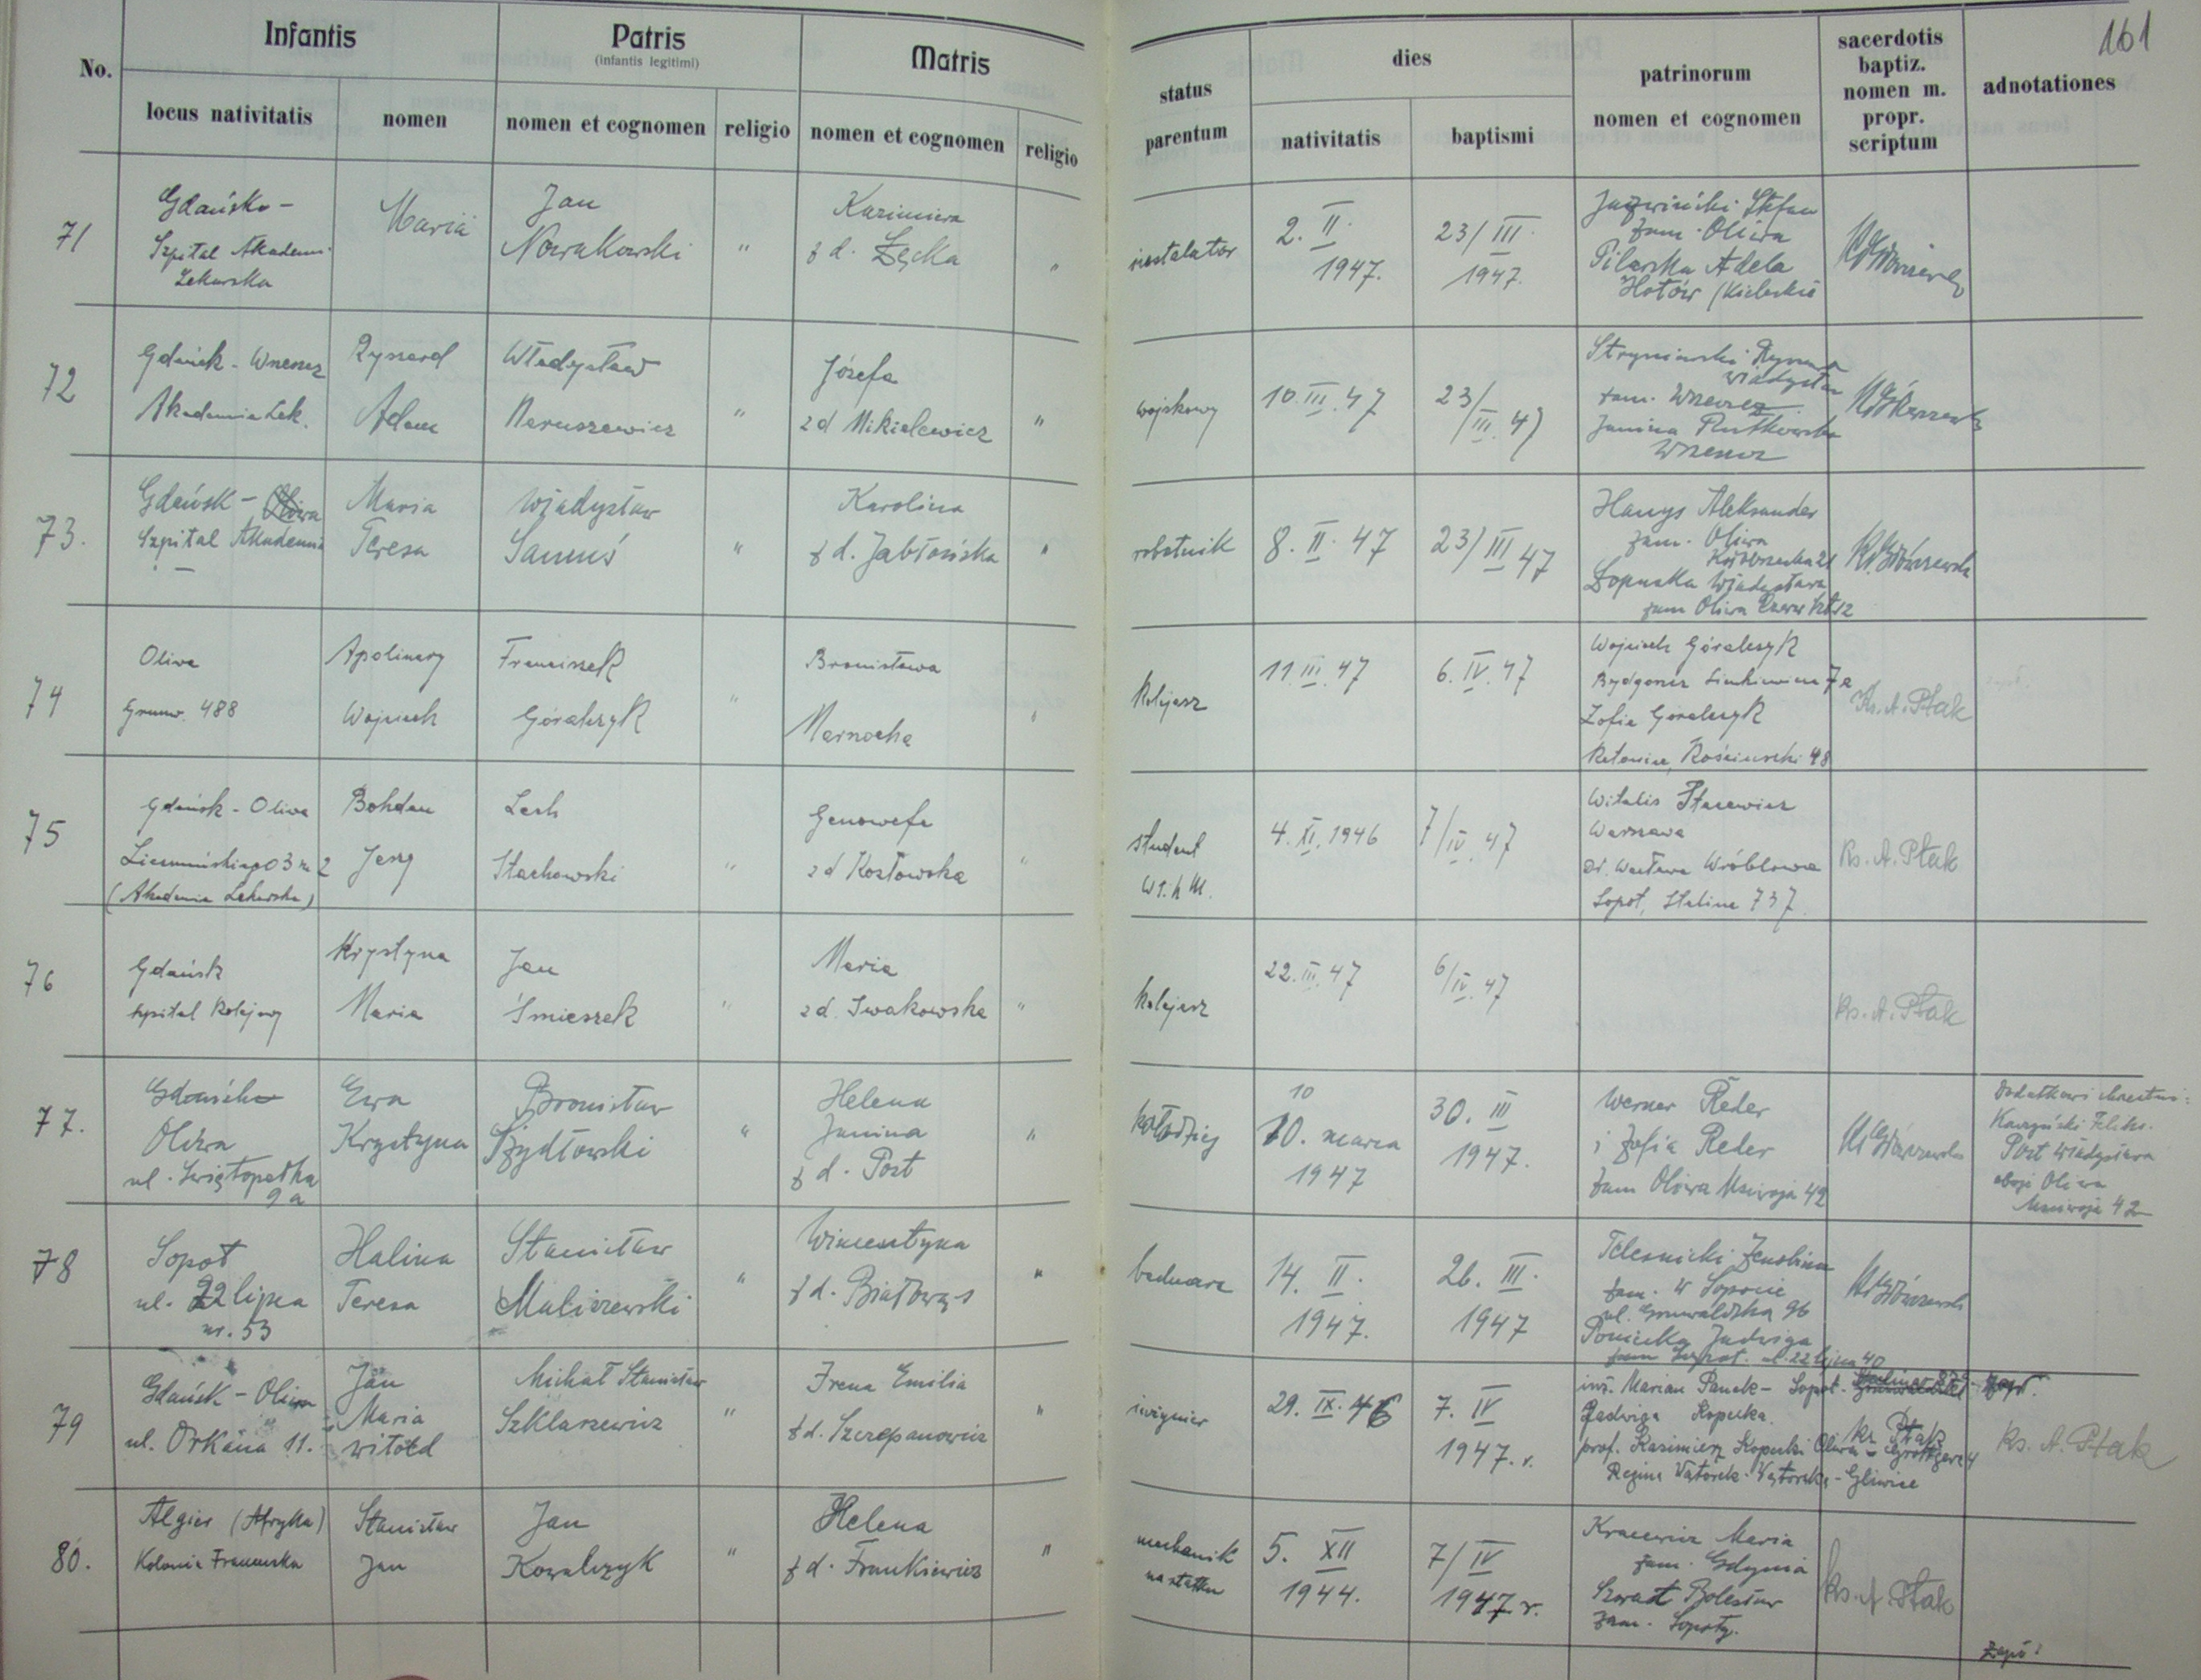 161
No.
Infantis
locus nativitatis
nomen
Patris
(infantis legitimi)
nomen et cognomen
religio
Matris
nomen et cognomen
religio
status
parentum
dies
nativitatis
baptismi
patrinorum
nomen et cognomen
sacerdotis
baptiz.
nomen m.
propr.
scriptum
adnotationes
71
Gdańsko -
Szpital Akademi
Lekarska
Maria
Jan
Nowakowski
"
Kazimiera
z d. Łęcka
"
instalator
2. II.
1947.
23/III.
1947.
Stefan
zam. Oliwa
Pilarska Adela
72
Gdańsk - Wrzeszcz
Akademia Lek.
Ryszard
Adam
Władysław
Naruszewicz
"
Józefa
zd Mikielewicz
"
wojskowy
10.III.47
23/
III.47
Władysław
zam. Wrzeszcz
Janina Rutkowska
Wrzeszcz
73.
Gdańsk - Oliwa
Szpital Akademia
Maria
Teresa
Władysław
Samuś
"
Karolina
z d. Jabłońska
"
robotnik
8. II. 47
23/III 47
Hanys Aleksander
zam. Oliwa
Łopuska Władysława
zam Oliwa
74
Oliwa
Grunw. 488
Apolinary
Wojciech
Franciszek
Góralczyk
"
Bronisława
Marnocha
"
kolejarz
11.III.47
6.IV.47
Wojciech Góralczyk
Bydgoszcz Sienkiewicza 7a
Zofia Góralczyk
Katowice, Kościuszki 48
Ks. A. Ptak
75
Gdańsk - Oliwa
(Akademia Lekarska)
Bohdan
Jerzy
Lech
Stachowski
"
Genowefa
zd Kozłowska
"
student
W.S.H.M.
4.XI.1946
7/IV.47
Witalis Stasewicz
Warszawa
dr. Wacława Wróblowa
Sopot, Stalina 737
Ks. A. Ptak
76
Gdańsk
szpital Kolejowy
Krystyna
Maria
Jan
Śmieszek
"
Maria
zd. Iwakowska
"
kolejarz
22.III.47
6/IV.47
Ks. A. Ptak
77.
Gdańsk
Oliwa
ul. Świętopełka
9a
Ewa
Krystyna
Bronisław
Szydłowski
"
Helena
Janina
z d. Port
"
kołodziej
10
10. marca
1947
30. III
1947.
Werner Reder
i Zofia Reder
zam Oliwa Mściwoja 42
Dodatkowi chrzestni:
Port Władysława
oboje Oliwa
Mściwoja 42
78
Sopot
ul. 22 lipca
nr. 53
Halina
Teresa
Stanisław
Maliszewski
"
Wincentyna
z d. Białowąs
"
bednarz
14. II.
1947.
26. III.
1947
Telesnicki Zenobiusz
zam. w Sopocie
ul. Grunwaldzka 96
Jadwiga
zam Sopot. ul. 22 lipca 40
79
Gdańsk - Oliwa
ul. Orkana 11.
Jan
Maria
Witold
Michał Stanisław
Szklarzewicz
"
Irena Emilia
z d. Szczepanowicz
"
inżynier
29. IX. 46
7. IV
1947. r.
inż. Marian Panek - Sopot.
Jadwiga Kopecka.
prof. Kazimierz Kopecki Oliwa - Grottgera 4
Regina Wątorek - Wątorska - Gliwice
ks Ptak
Ks. A. Ptak
80.
Algier (Afryka)
Kolonia Francuska
Stanisław
Jan
Jan
Kowalczyk
"
Helena
z d. Frankiewicz
"
mechanik
na statku
5. XII
1944.
7/IV
1947 r.
Kracewicz Maria
zam. Gdynia
Szwast Bolesław
zam. Sopoty.
Ks. A Ptak